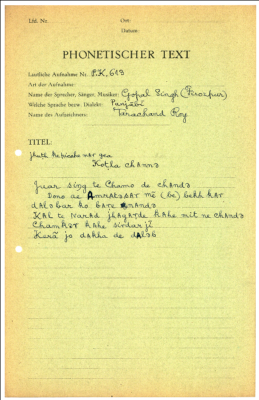 Lfd. Nr.
Ort:
Datum:
PHONETISCHER TEXT
Lautliche Aufnahme Nr. P.K. 613
Art der Aufnahme:
Name des Sprecher, Sänger, Musiker: Gopal Singh (Firozpur)
Welche Sprache bezw. Dialekt: Panjabi
Name des Aufzeichners: Tarachand Roy
TITEL:
jhuth kapicohe nar gea
Kotha chann
Juar sing te Chamo de chandə
Dono ae Amratsaar mẽ (be) bekh kar
dalsbar ho nandə
Kal te Narad jhagarde kahe mit ne chandə
Chamkər kahe sirdar ji
Kerã jo dakha de